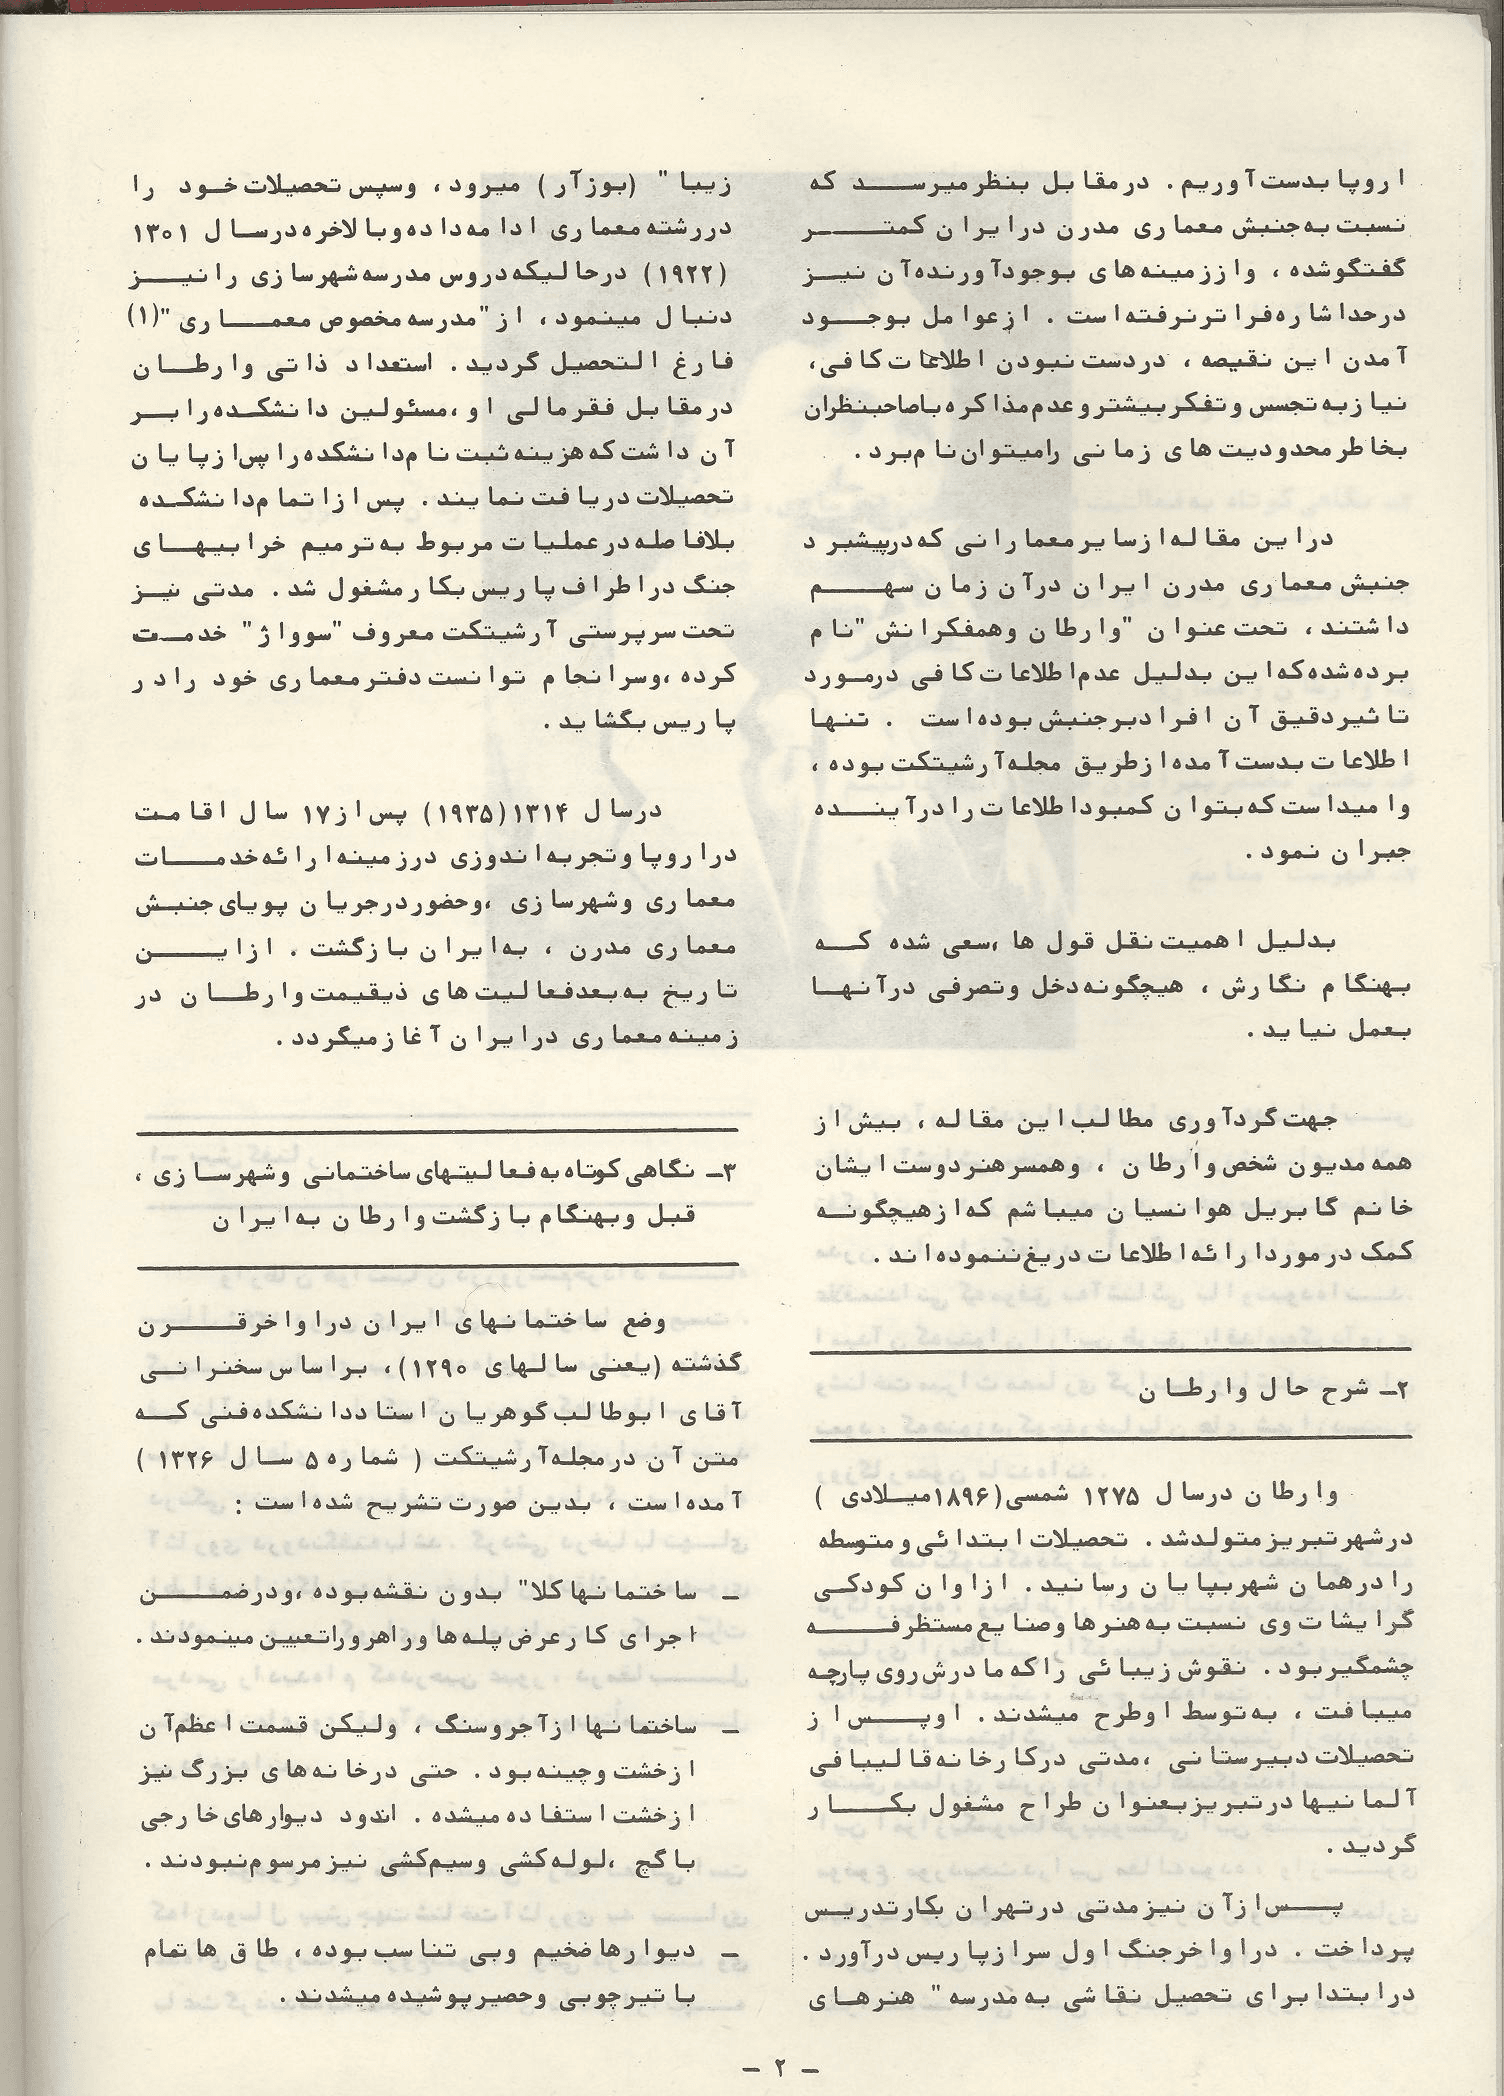 اروپا بدست آوریم. در مقابل بنظر میرسد که
نسبت به جنبش معماری مدرن در ایران کمتر
گفتگو شده ، و از زمینه های بوجود آورنده آن نیز
در حد اشاره فراتر نرفته است . از عوامل بوجود
آمدن این نقیصه ، در دست نبودن اطلاعات کافی،
نیاز به تجسس و تفکر بیشتر و عدم مذاکره با صاحبنظران
بخاطر محدودیت های زمانی را میتوان نام برد .
در این مقاله از سایر معمارانی که در پیشبرد
جنبش معماری مدرن ایران در آن زمان سهم
داشتند ، تحت عنوان "وارطان و همفکرانش" نام
برده شده که این بدلیل عدم اطلاعات کافی در مورد
تاثیر دقیق آن افراد بر جنبش بوده است . تنها
اطلاعات بدست آمده از طریق مجله آرشیتکت بوده ،
و امید است که بتوان کمبود اطلاعات را در آینده
جبران نمود .
بدلیل اهمیت نقل قول ها ،سعی شده که
بهنگام نگارش ، هیچگونه دخل و تصرفی در آنها
بعمل نیاید .
جهت گردآوری مطالب این مقاله ، بیش از
همه مدیون شخص وارطان ، و همسر هنردوست ایشان
خانم گابریل هوانسیان میباشم که از هیچگونه
کمک در مورد ارائه اطلاعات دریغ ننموده اند .
۲ـ شرح حال وارطان
وارطان در سال ۱۲۷۵ شمسی (۱۸۹۶ میلادی )
در شهر تبریز متولد شد . تحصیلات ابتدائی و متوسطه
را در همان شهر بپایان رسانید . از اوان کودکی
گرایشات وی نسبت به هنرها و صنایع مستظرفه
چشمگیر بود . نقوش زیبائی را که مادرش روی پارچه
میبافت ، به توسط او طرح میشدند . او پس از
تحصیلات دبیرستانی ،مدتی در کارخانه قالیبافی
آلمانیها در تبریز بعنوان طراح مشغول بکار
گردید .
پس از آن نیز مدتی در تهران بکار تدریس
پرداخت . در اواخر جنگ اول سر از پاریس درآورد .
در ابتدا برای تحصیل نقاشی به مدرسه " هنرهای
زیبا " (بوزآر ) میرود ، و سپس تحصیلات خود را
در رشته معماری ادامه داده و بالاخره در سال ۱۳۰۱
(۱۹۲۲) در حالیکه دروس مدرسه شهرسازی را نیز
دنبال مینمود ، از "مدرسه مخصوص معماری "(۱)
فارغ التحصیل گردید . استعداد ذاتی وارطان
در مقابل فقر مالی او ،مسئولین دانشکده را بر
آن داشت که هزینه ثبت نام دانشکده را پس از پایان
تحصیلات دریافت نمایند . پس از اتمام دانشکده
بلافاصله در عملیات مربوط به ترمیم خرابیهای
جنگ در اطراف پاریس بکار مشغول شد . مدتی نیز
تحت سرپرستی آرشیتکت معروف "سوواژ" خدمت
کرده ،و سرانجام توانست دفتر معماری خود را در
پاریس بگشاید .
در سال ۱۳۱۴ (۱۹۳۵) پس از ۱۷ سال اقامت
در اروپا و تجربه اندوزی در زمینه ارائه خدمات
معماری و شهرسازی ،و حضور در جریان پویای جنبش
معماری مدرن ، به ایران بازگشت . از این
تاریخ به بعد فعالیت های ذیقیمت وارطان در
زمینه معماری در ایران آغاز میگردد .
۳ـ نگاهی کوتاه به فعالیتهای ساختمانی و شهرسازی ،
قبل و بهنگام بازگشت وارطان به ایران
وضع ساختمانهای ایران در اواخر قرن
گذشته (یعنی سالهای ۱۲۹۰)، بر اساس سخنرانی
آقای ابوطالب گوهریان استاد دانشکده فنی که
متن آن در مجله آرشیتکت ( شماره ۵ سال ۱۳۲۶ )
آمده است ، بدین صورت تشریح شده است :
ـ ساختمانها کلا" بدون نقشه بوده ،و در ضمن
اجرای کار عرض پله ها و راهرو را تعیین مینمودند .
ـ ساختمانها از آجر و سنگ ، ولیکن قسمت اعظم آن
از خشت و چینه بود . حتی در خانه های بزرگ نیز
از خشت استفاده میشده . اندود دیوارهای خارجی
با گچ ،لوله کشی و سیم کشی نیز مرسوم نبودند .
ـ دیوارها ضخیم و بی تناسب بوده ، طاق ها تمام
با تیر چوبی و حصیر پوشیده میشدند .
ـ ۲ ـ